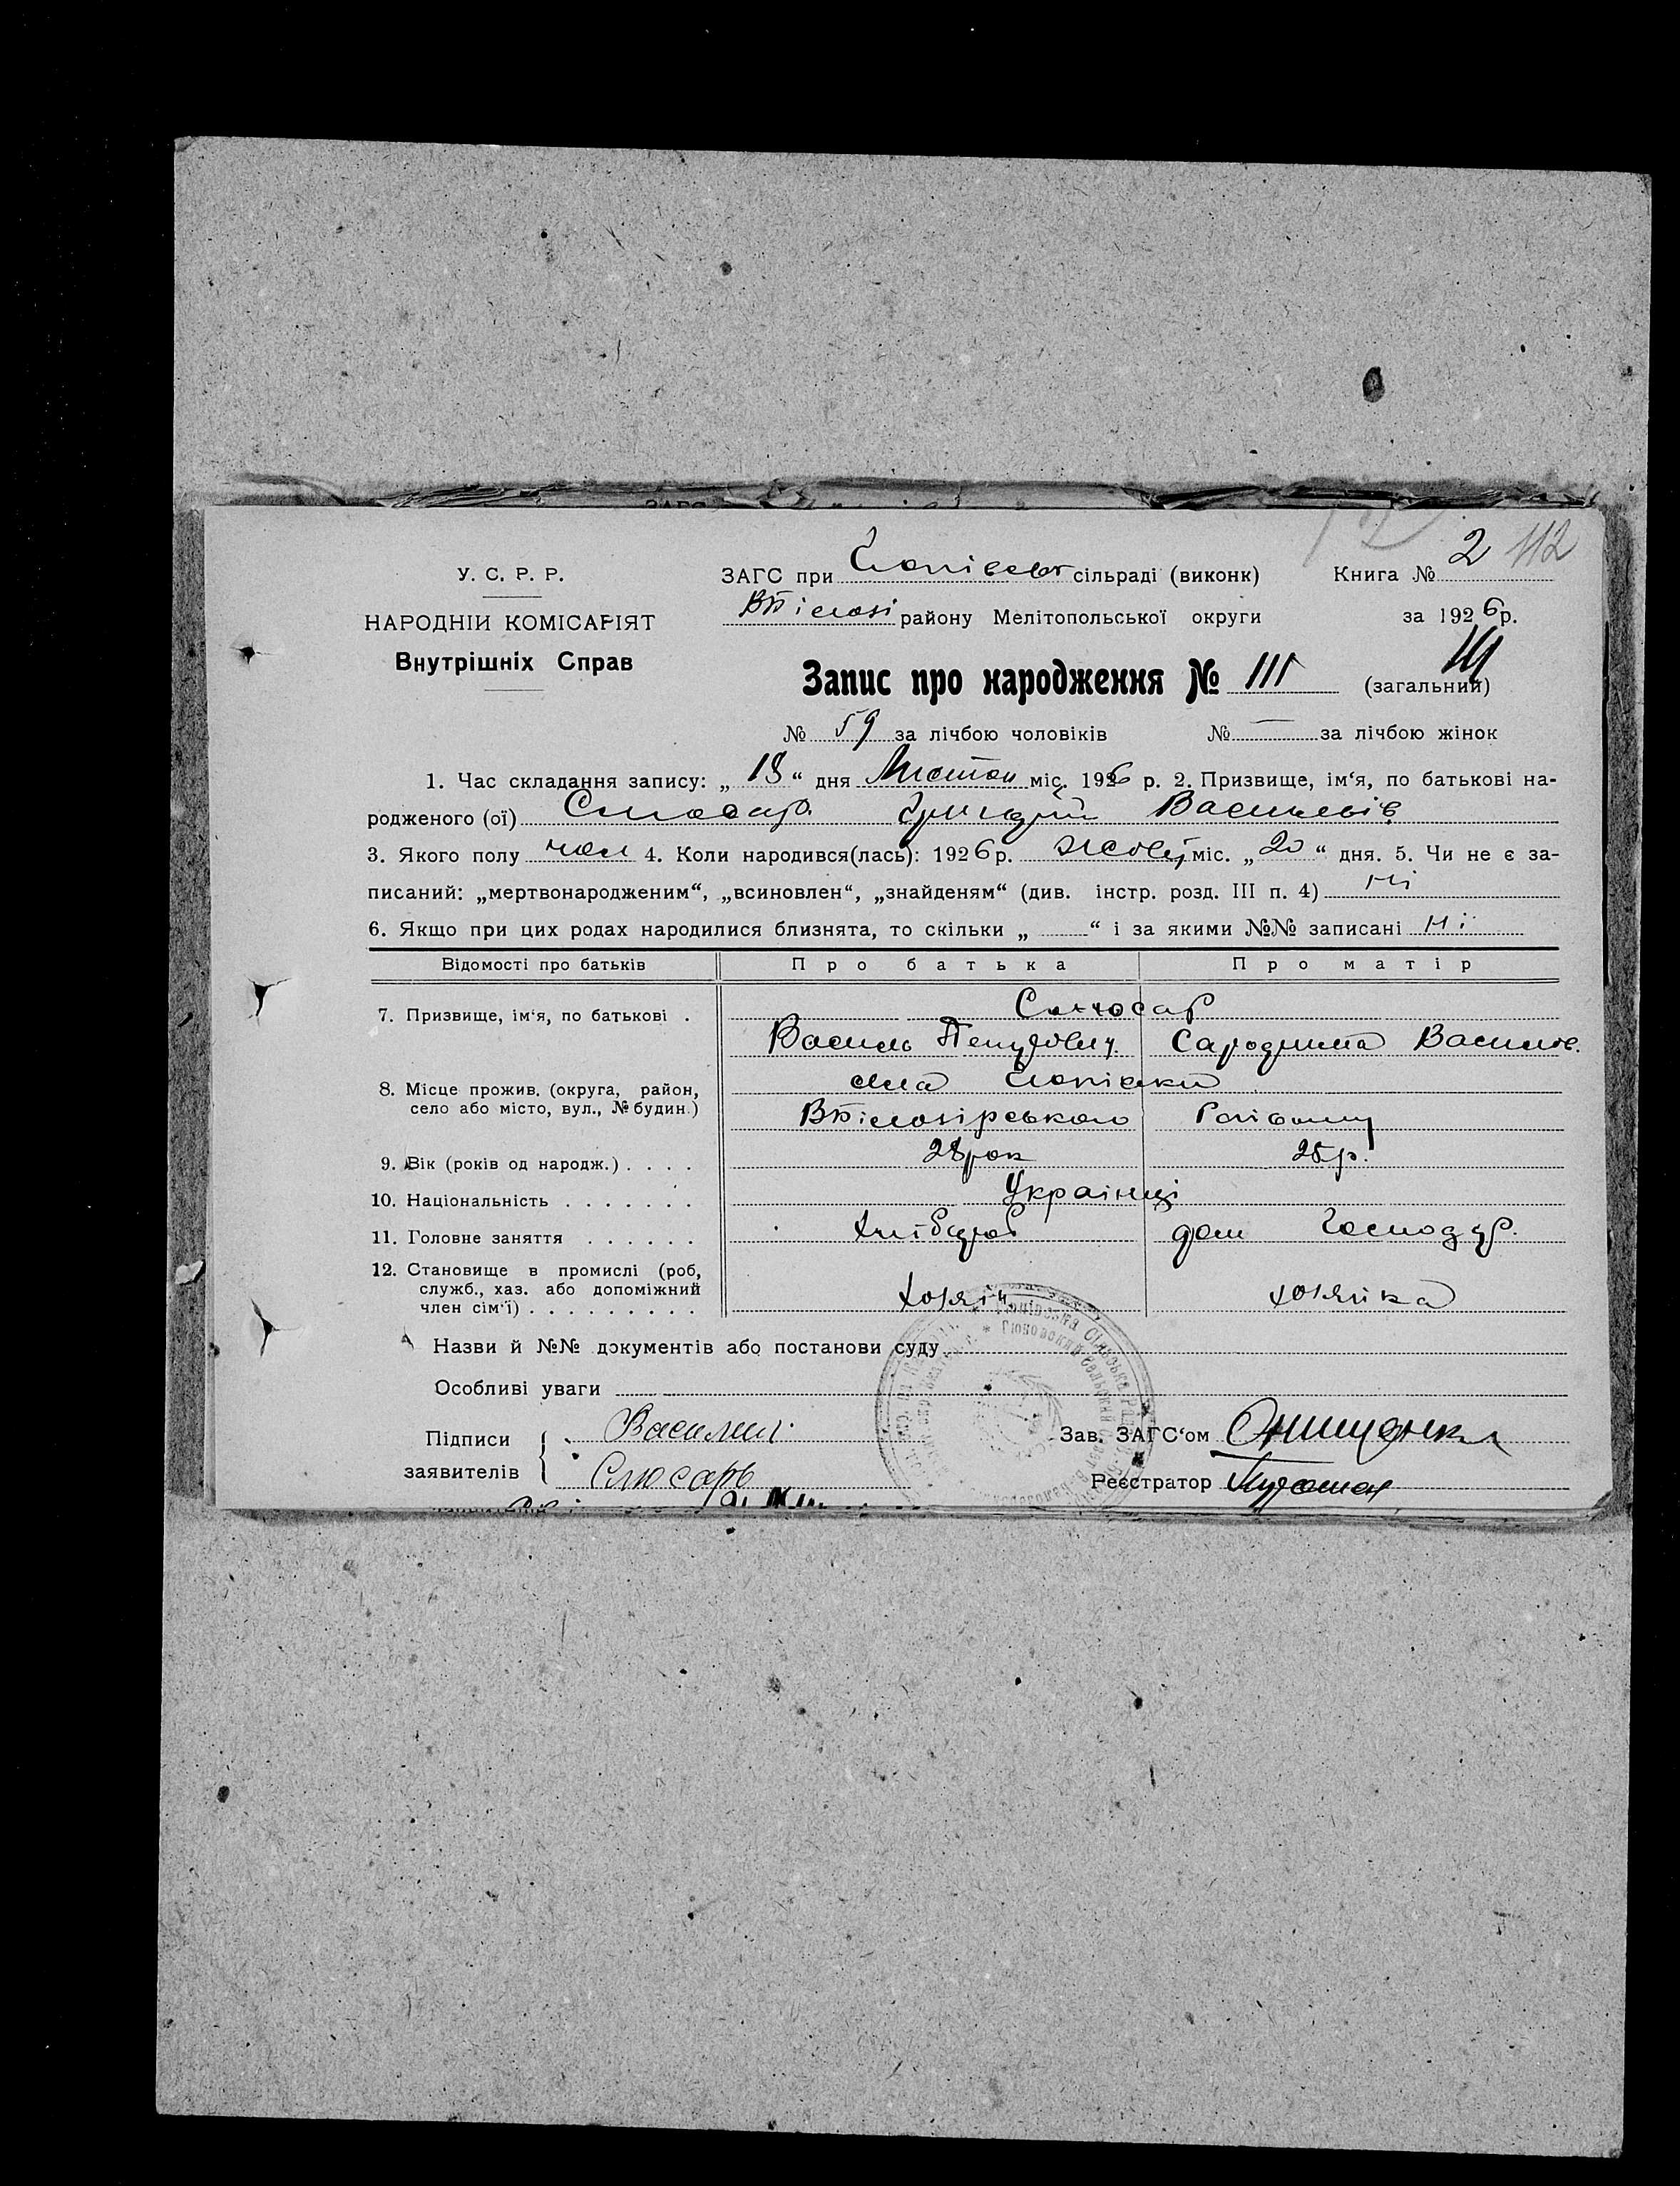 У. С. Р. Р.
НАРОДНІЙ КОМІСАРІЯТ
Внутрішніх Справ
ЗАГС при сільраді (виконк) Книга № 2 112
району Мелітопольської округи за 1926 р.
Запис про народження № 111 (загальний)
№ 59 за лічбою чоловіків № — за лічбою жінок
1. Час складання запису: „18“ дня Листоп міс. 1926 р. 2. Призвище, ім‘я, по батькові на-
родженого (ої) Слюсар Григорій Васильвів
3. Якого полу чол 4. Коли народився(лась): 1926 р. Жовт міс. „20“ дня. 5. Чи не є за-
писаний: „мертвонародженим“, „всиновлен“, „знайденям“ (див. інстр. розд. III п. 4) ні
6. Якщо при цих родах народилися близнята, то скільки „ “ і за якими №№ записані ні
Відомості про батьків Про батька Про матір
7. Призвище, ім‘я, по батькові . Слюсар
Василь Василів.
8. Місце прожив. (округа, район,
село або місто, вул., № будин.)
села
ВБілозірського Району
9. Вік (років од народж.) . . . . 28 рок 25 р.
10. Національність . . . . . . . Українці
11. Головне заняття . . . . . . Хлібороб дом Господар.
12. Становище в промислі (роб,
служб., хаз. або допоміжний
член сім‘ї) . . . . . . . . . Хозяїн хозяїка
Назви й №№ документів або постанови суду
Особливі уваги
Підписи
заявителів
Василий
Слюсарь
Зав. ЗАГС‘ом Онищенко
Реєстратор